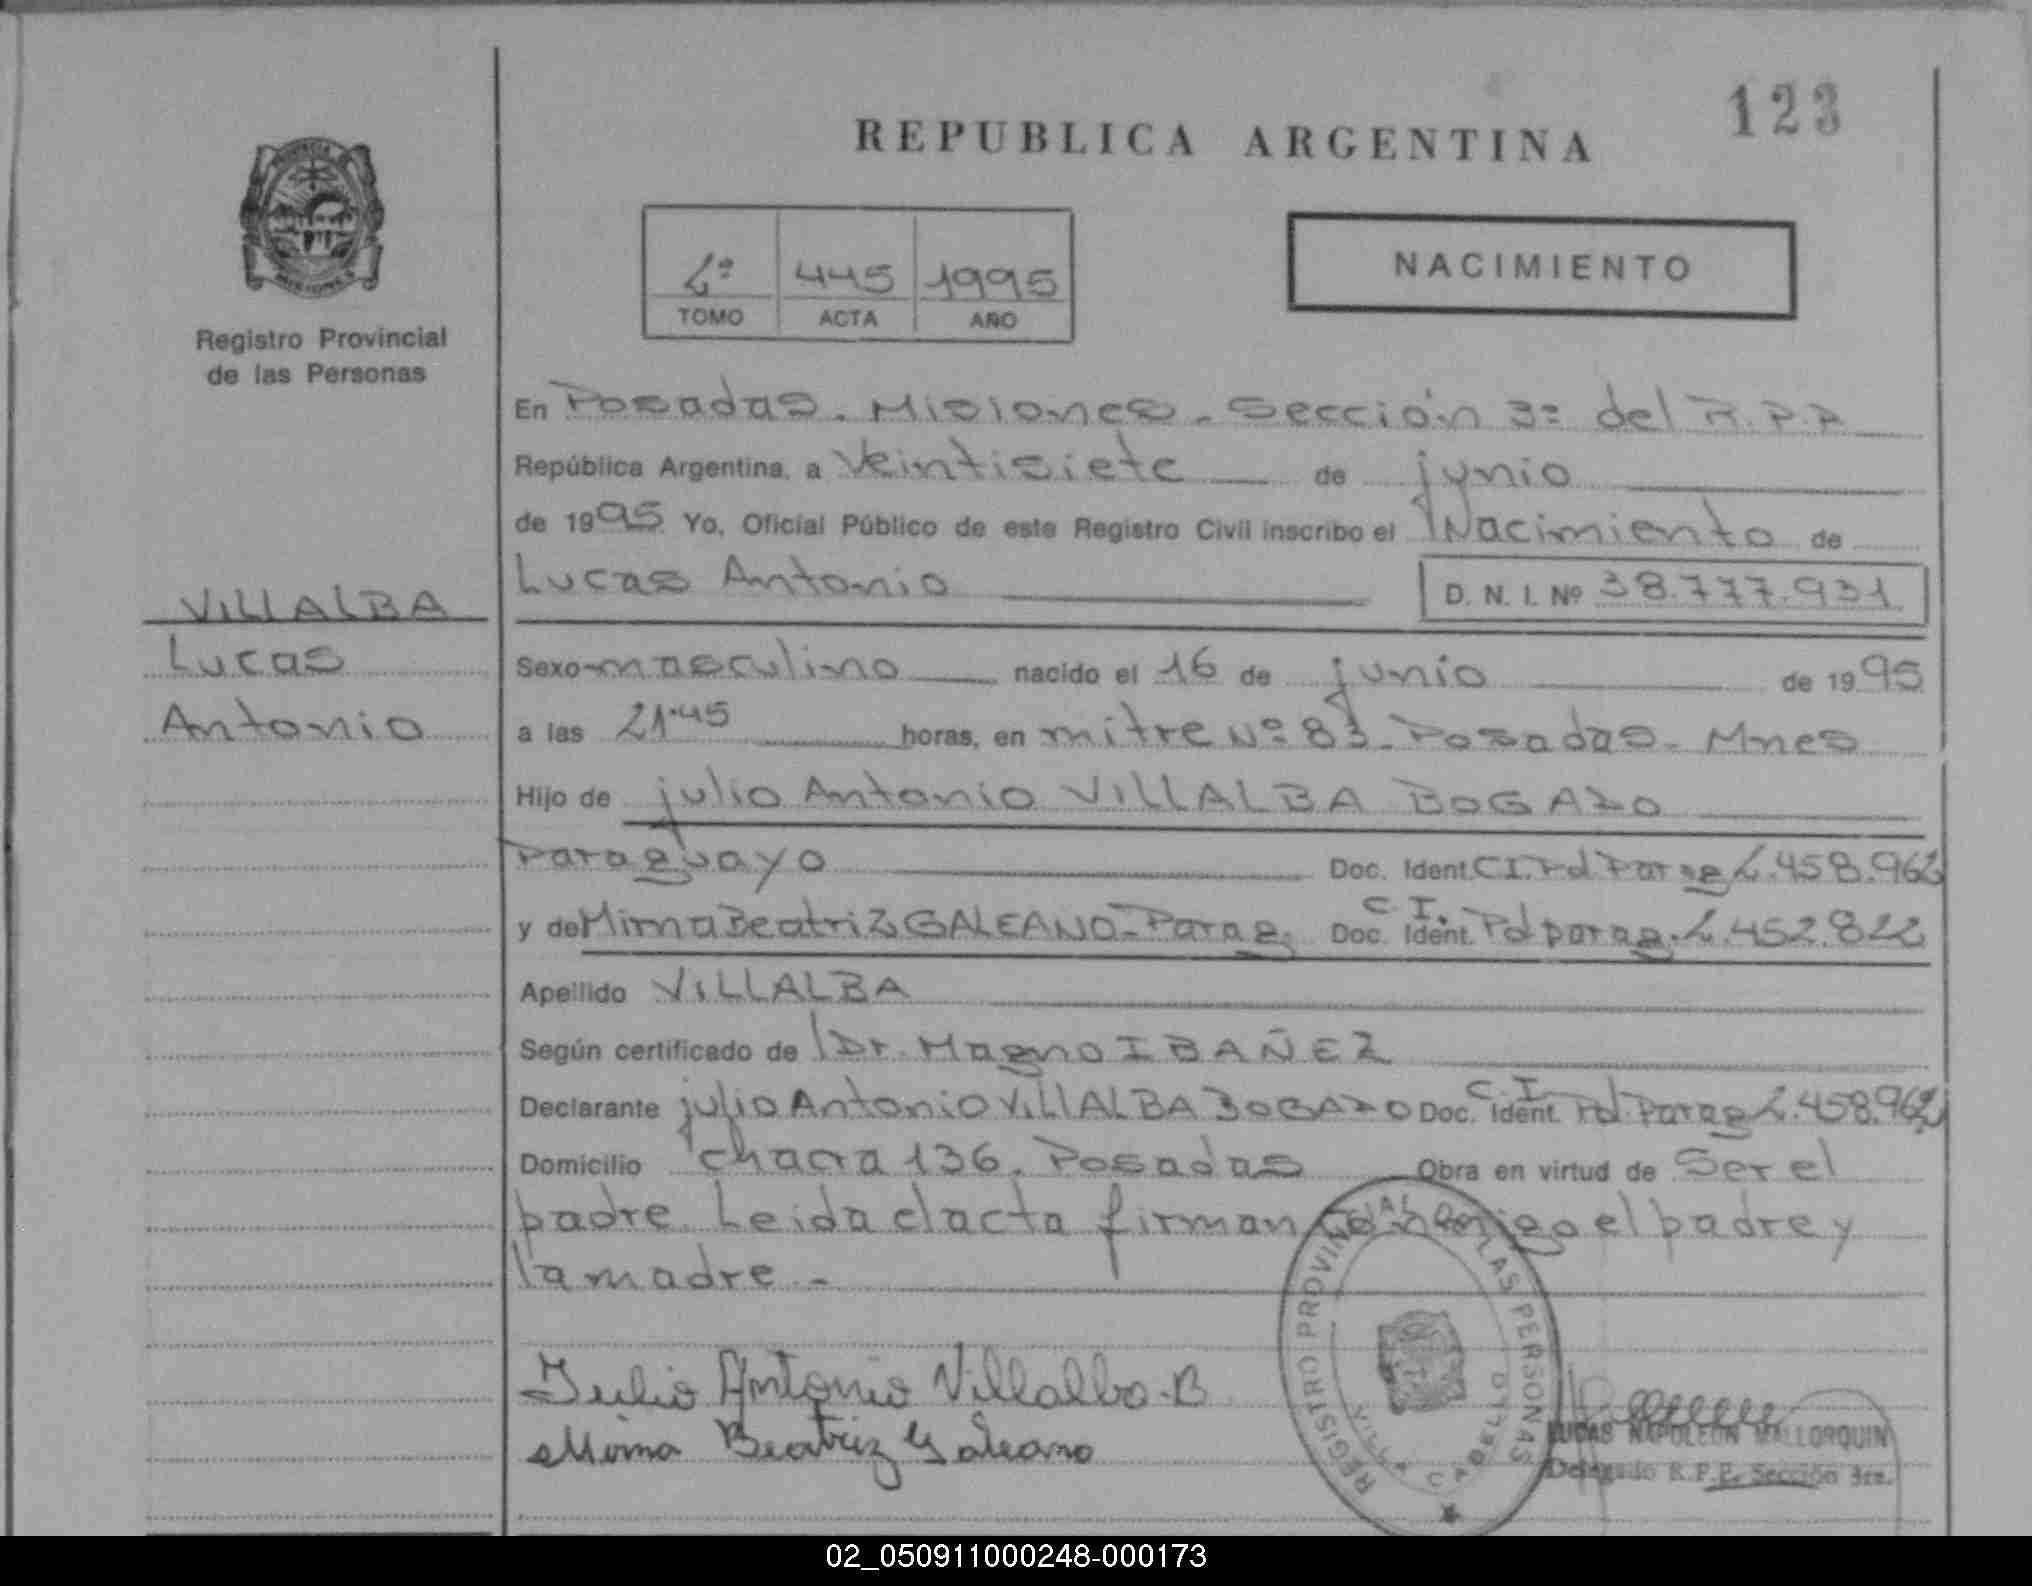 123
REPUBLICA ARGENTINA
2º 445 1995
TOMO ACTA AÑO
NACIMIENTO
Registro Provincial
de las Personas
En Posadas. Misiones - Sección 3ª del R.P.P
República Argentina, a Veintisiete de junio
de 1995 Yo, Oficial Público de este Registro Civil inscribo el Nacimiento de
Lucas Antonio D. N. I. Nº 38.777.931
VILLALBA
Lucas
Antonio
Sexo masculino nacido el 16 de junio de 1995
a las 21.45 horas, en mitre Nº 83. Posadas - Mnes
Hijo de julio Antonio VILLALBA BOGADO
Paraguayo Doc. Ident. C.I. Pol. Parag 2.458.962
y de Mirna Beatriz GALEANO - Parag. Doc. Ident. C.I. Pol parag. 2.452.822
Apellido VILLALBA
Según certificado de Dr. Magno IBAÑEZ
Declarante julio Antonio VILLALBA BOGADO Doc. Ident. C.I. Pol. Parag 2.458.962
Domicilio chacra 136. Posadas Obra en virtud de Ser el
padre. Leida el acta firman conmigo el padre y
la madre -
Julio Antonio Villalba.B
Mirna Beatriz Galeano
REGISTRO PROVINCIAL DE LAS PERSONAS
VILLA CABELLO
LUCAS NAPOLEON MALLORQUIN
Delegado R.P.P. Sección 3ra.
02_050911000248-000173